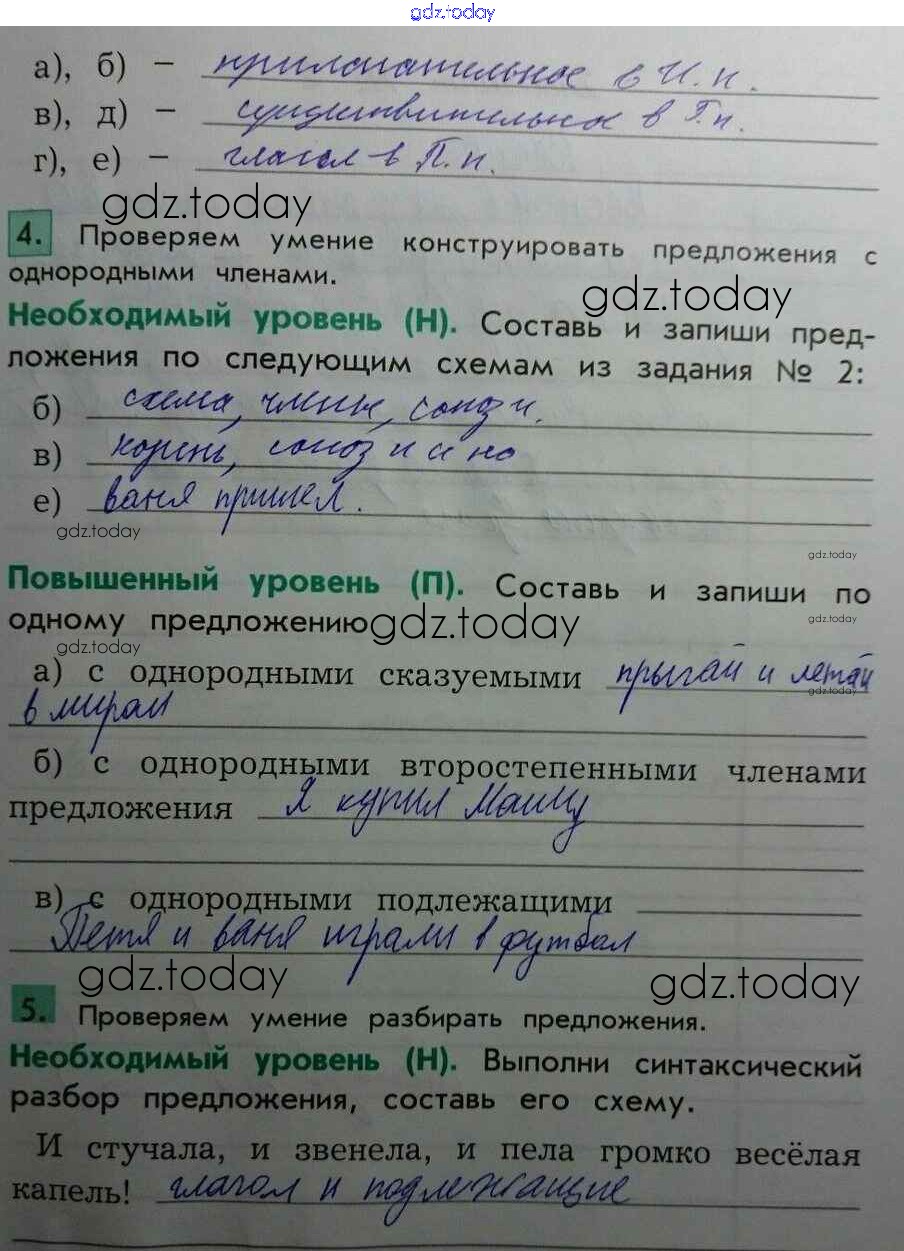 gdz.today
а), б) – прилагательное в И.п.
в), д) – существительное в Т.п.
г), е) – глагол в П.п.
gdz.today
4. Проверяем умение конструировать предложения с
однородными членами.
gdz.today
Необходимый уровень (Н). Составь и запиши пред-
ложения по следующим схемам из задания № 2:
б) схема, члены, союз и.
в) корень, союз и и но
е) ваня пришел.
gdz.today
gdz.today
Повышенный уровень (П). Составь и запиши по
одному предложению
gdz.today
gdz.today
gdz.today
а) с однородными сказуемыми прыгай и летай
gdz.today
в
б) с однородными второстепенными членами
предложения Я купил Машу
в) с однородными подлежащими
Петя и ваня играли в футбол
gdz.today
gdz.today
5. Проверяем умение разбирать предложения.
Необходимый уровень (Н). Выполни синтаксический
разбор предложения, составь его схему.
И стучала, и звенела, и пела громко весёлая
капель! глагол и подлежащие